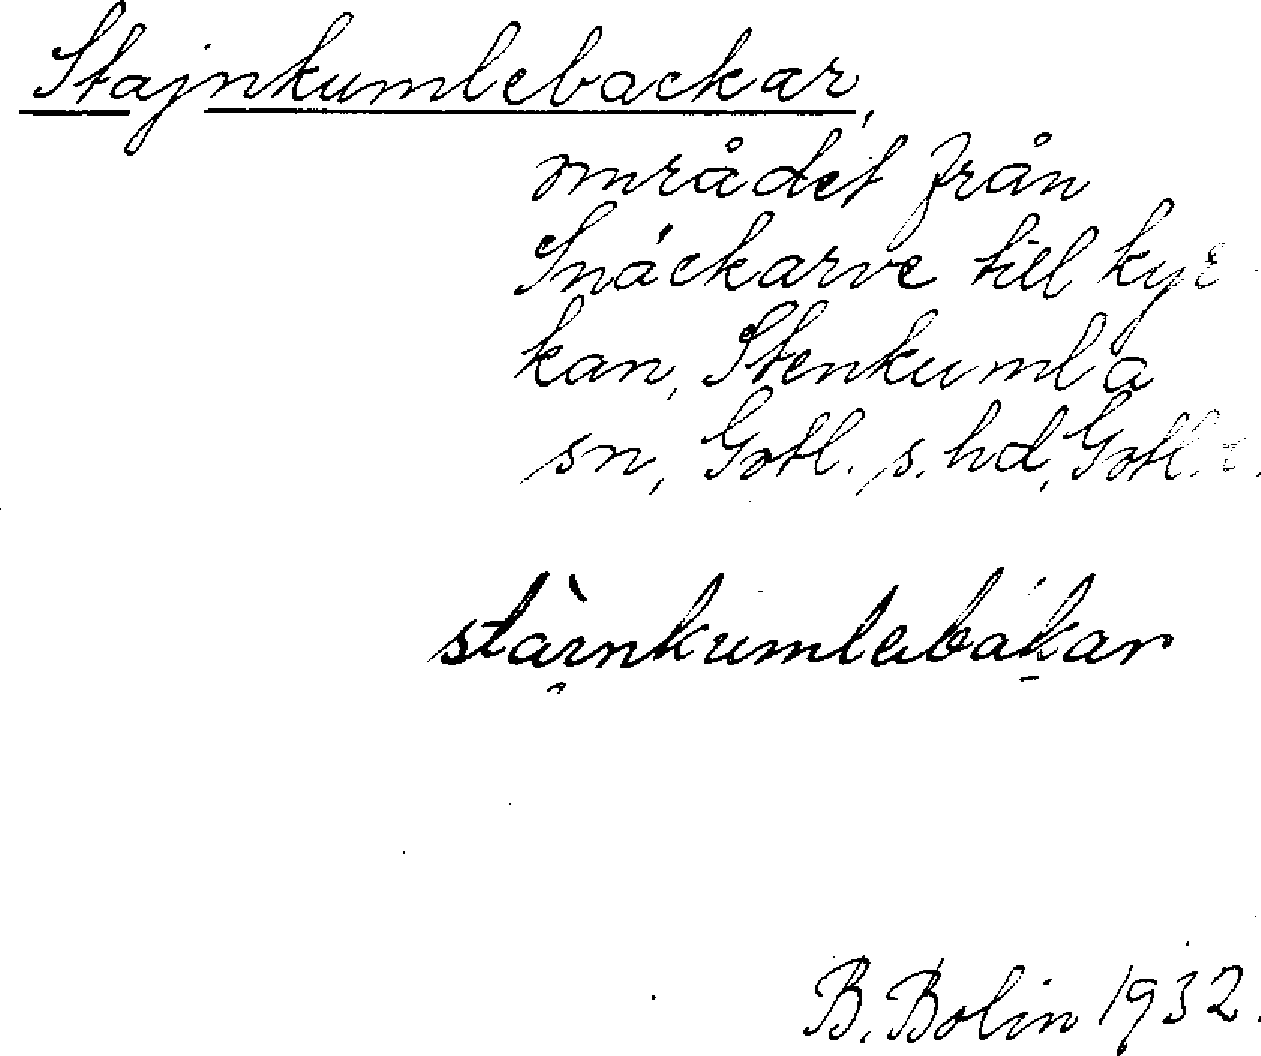 Stajnkumlebackar,
området från
Snäckarve till kyr-
kan, Stenkumla
sn, Gotl. s. hd, Gotl. l.
stàınkumlabákar
B. Bolin 1932.